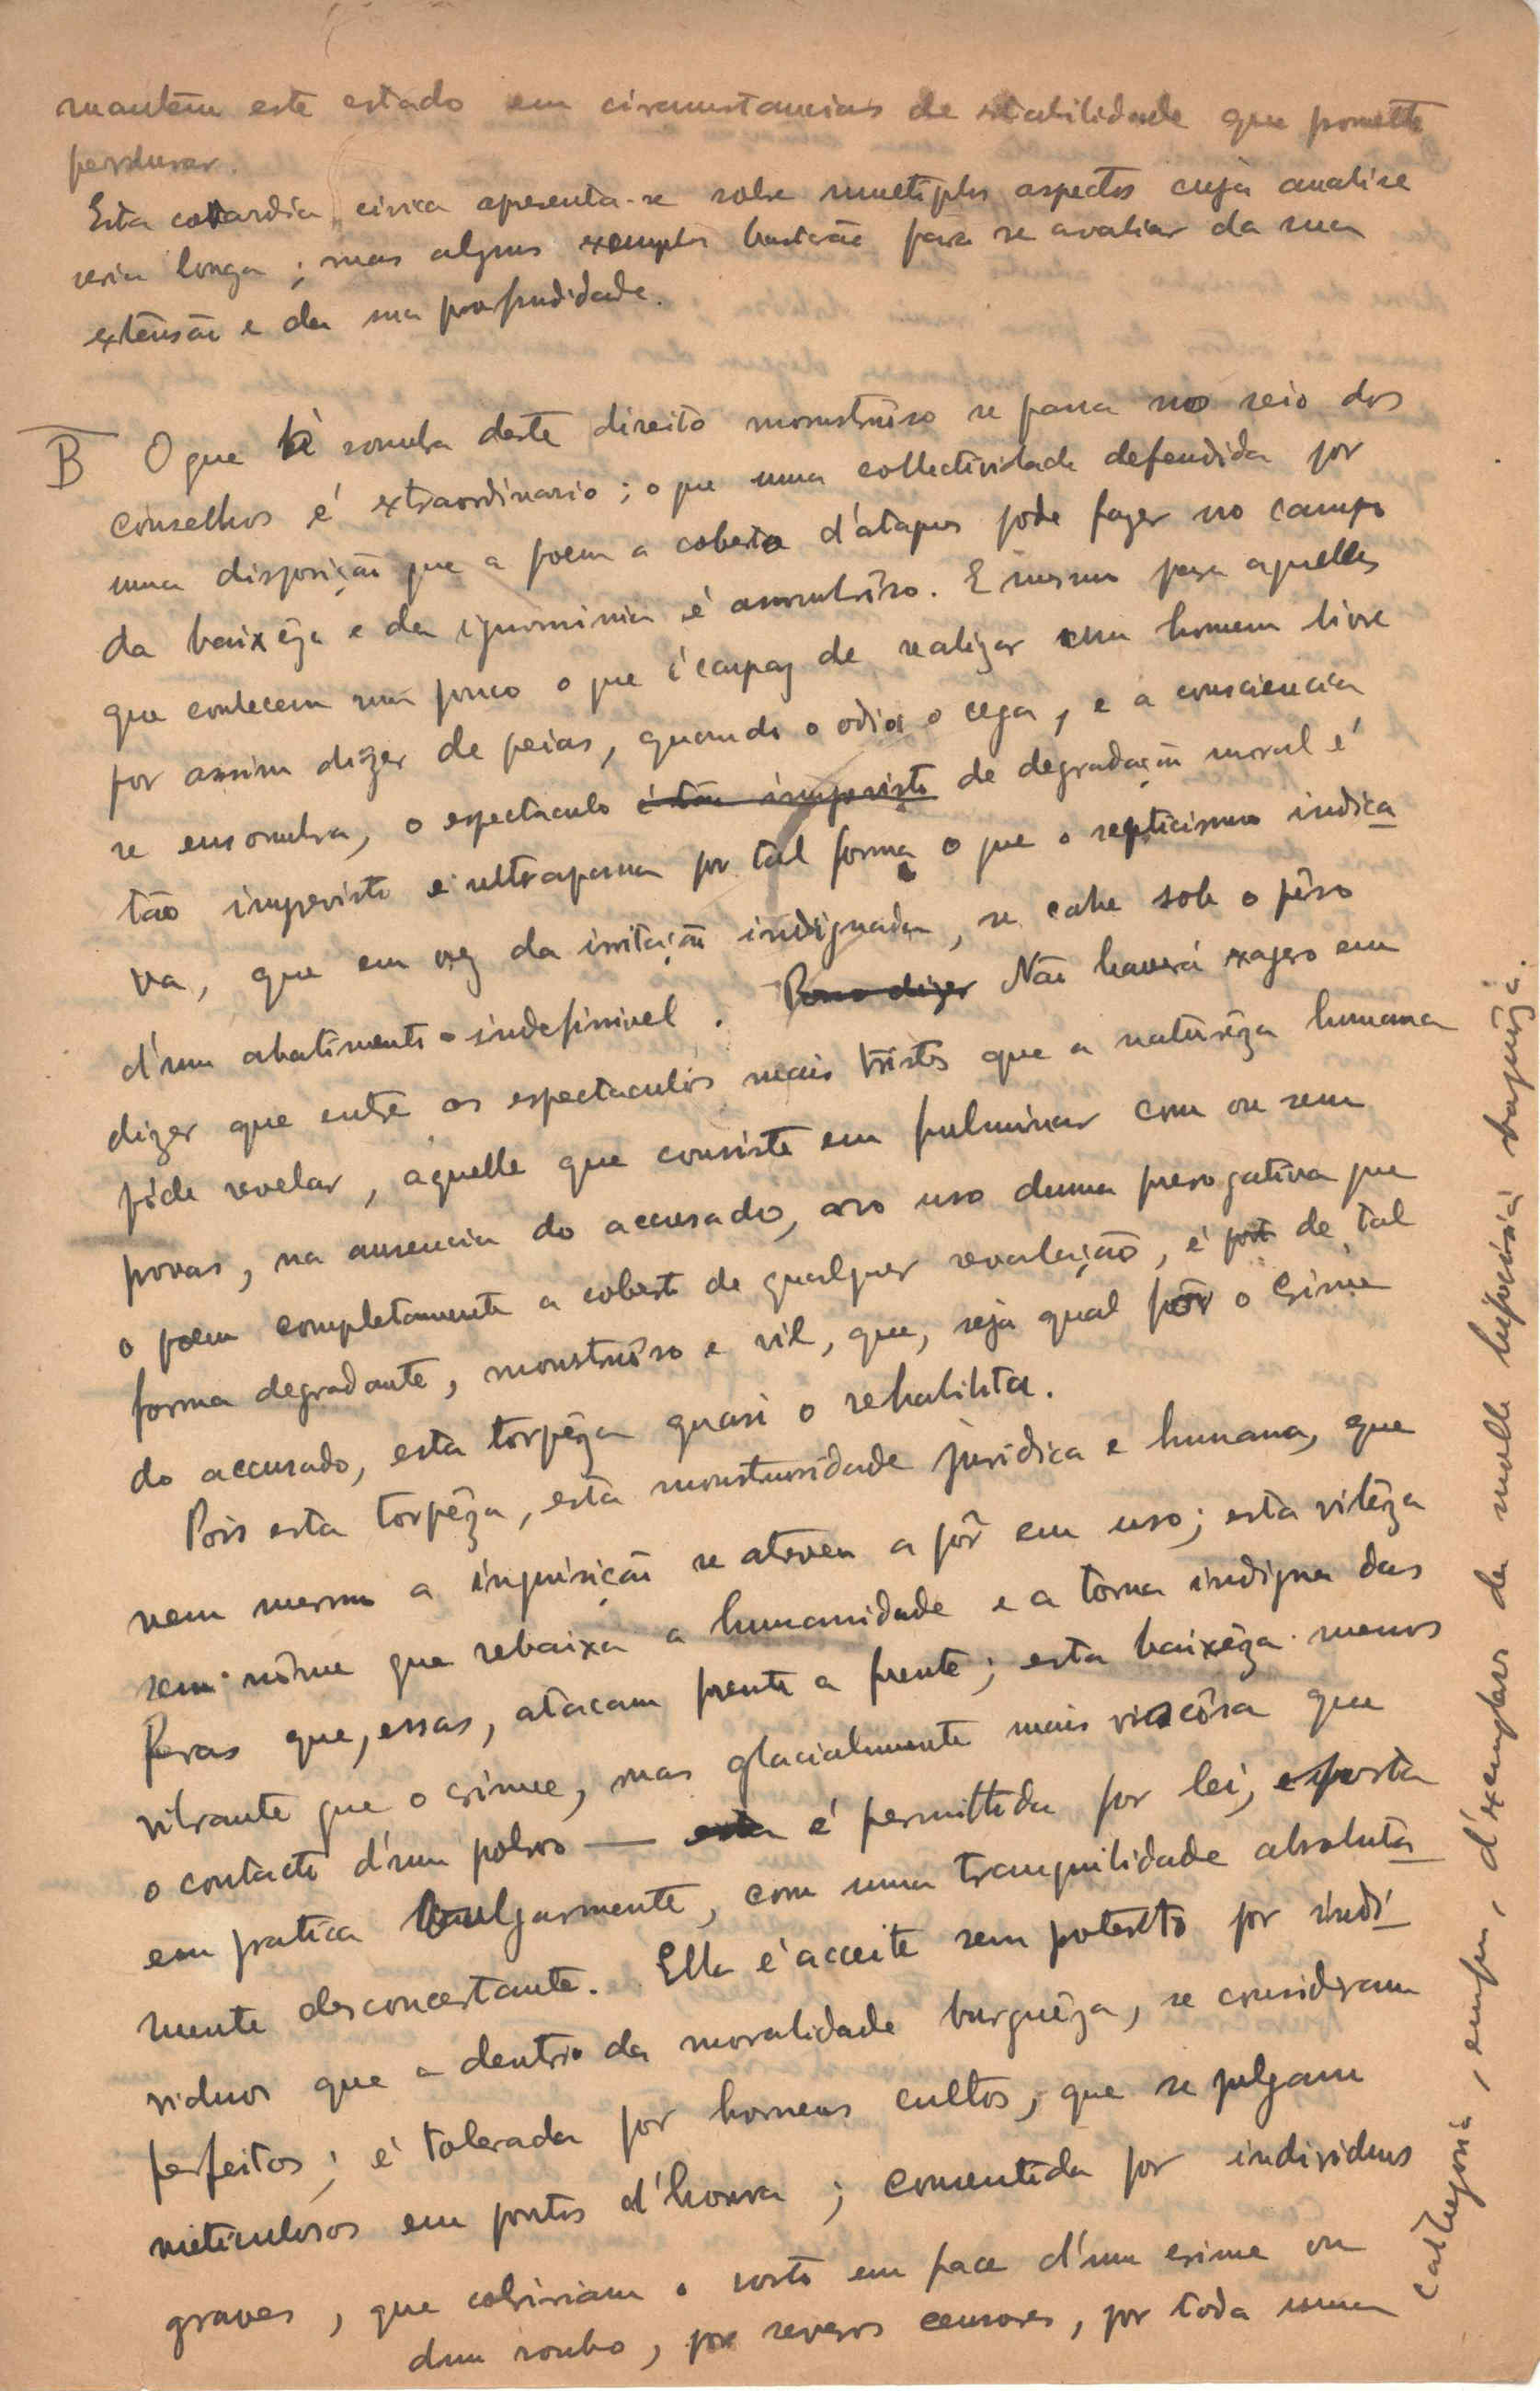 mantêm este estado em circumstancias de estabilidade que promette
perdurar.
Esta cobardia civica apresenta-se sobre multiplos aspectos cuja analise
seria longa; mas alguns exemplos bastarão para se avaliar da sua
extensão e da sua profundidade.
B O que à sombra deste direito monstruôso se passa no seio dos
conselhos é extraordinario; o que uma collectividade defendida por
uma disposição que a poem a coberto d'ataques pode fazer no campo
da baixêza e da ignominia é assombrôso. E mesmo para aquelles
que conhecem um pouco o que é capaz de realizar um homem livre
por assim dizer de peias, quando o odio o cega, e a consciencia
se ensombra, o espectaculo é tão imprevisto de degradação moral é
tão imprevisto e ultrapassa por tal forma o que o septicismo indica
va, que em vez da irritação indignada, se cahe sob o pêso
d'um abatimento indefinivel. Posso dizer Não haverá exagero em
dizer que entre os espectaculos mais tristes que a naturêza humana
póde revelar, aquelle que consiste em fulminar com ou sem
provas, na ausencia do accusado, no uso duma prerogativa que
o poem completamente a coberto de qualquer revalação, é de tal
forma degradante, monstruôso e vil, que, seja qual fôr o crime
do accusado, esta torpêza quasi o rehabilita.
Pois esta torpêza, esta monstruosidade juridica e humana, que
nem mesmo a inquisição se atreveu a pôr em uso; esta vilêza
sem nôme que rebaixa a humanidade e a torna indigna das
feras que, essas, atacam frente a frente; esta baixêza menos
vibrante que o crime, mas glacialmente mais viscôsa que
o contacto d'um polvo — esta é permittida por lei, e posta
em pratica vulgarmente, com uma tranquilidade absoluta
mente desconcertante. Ella é acceite sem protesto por indi
viduos que a dentro da moralidade burguêza, se consideram
perfeitos; é tolerada por homens cultos, que se julgam
meticulosos em pontos d'honra; consentida por individuos
graves, que cobririam o rosto em face d'um crime ou
dum roubo, por severos censores, por toda uma
cathegoria, emfim, d'exemplares da molle hipocrisia burguêza.